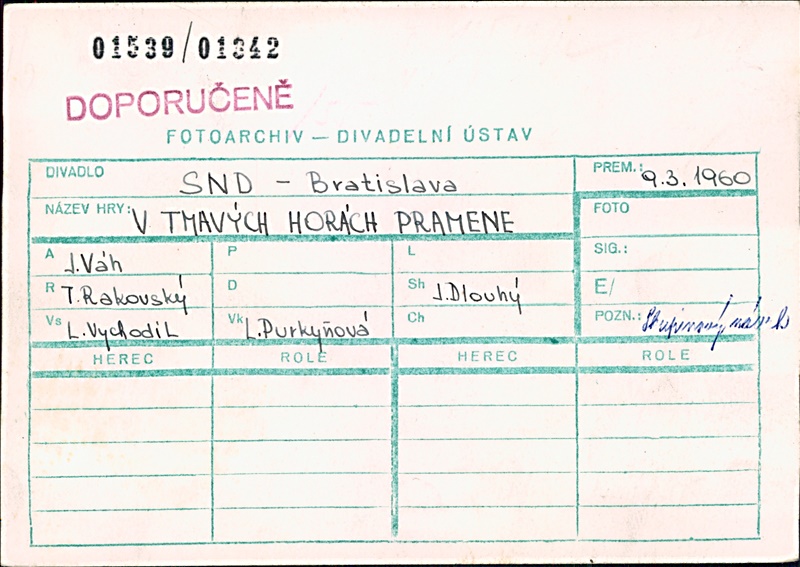 01539/01342
DOPORUČENĚ
FOTOARCHIV — DIVADELNÍ ÚSTAV
DIVADLO SND - Bratislava PREM.: 9.3.1960
NÁZEV HRY: V TMAVÝCH HORÁCH PRAMENE FOTO
A J.Váh P L SIG.:
R T.Rakovský D Sh J.Dlouhý E/
Vs L.Vychodil Vk L.Purkyňová Ch POZN.:
HEREC ROLE HEREC ROLE